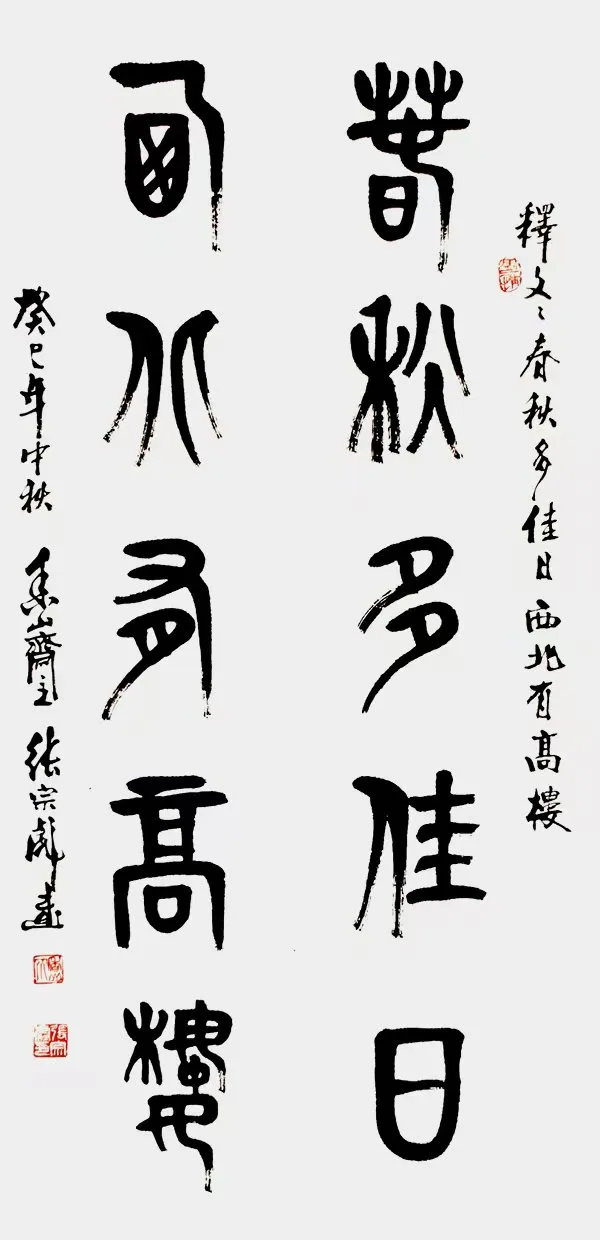 釋文：春秋多佳日西北有高樓
春秋多佳日
西北有高樓
癸巳年中秋 山齋主 張宗彪書